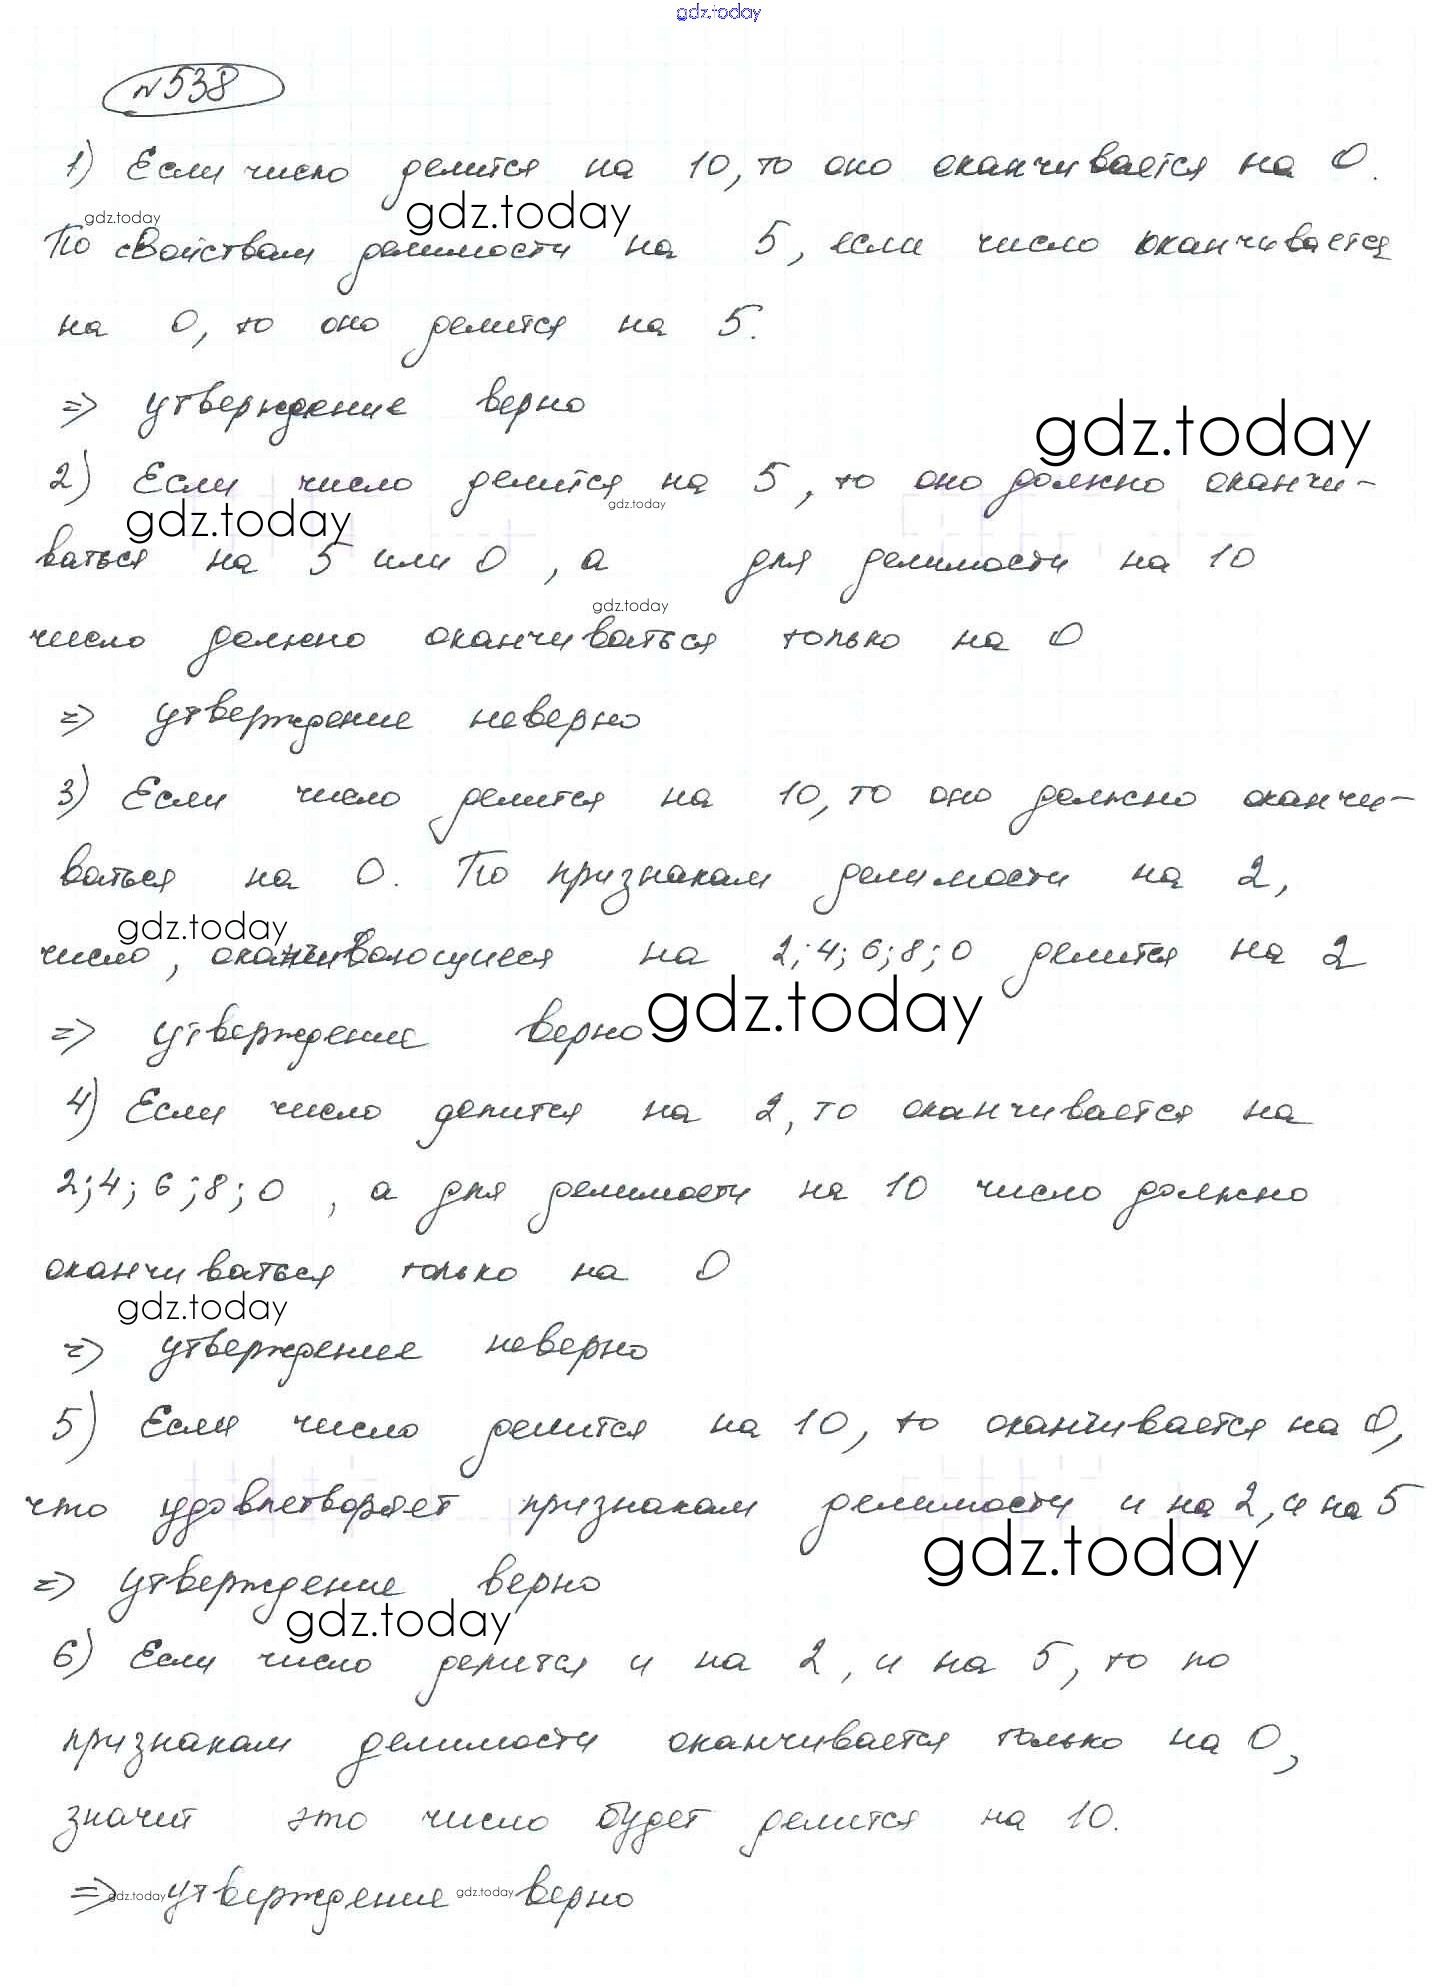 gdz.today
№538
1) Если число делится на 10, то оно оканчивается на 0.
gdz.today gdz.today
По свойствам делимости на 5, если число оканчивается
на 0, то оно делится на 5.
=> утверждение верно
gdz.today
2) Если число делится на 5, то оно должно оканчи-
gdz.today gdz.today
ваться на 5 или 0, а для делимости на 10
gdz.today
число должно оканчиваться только на 0
=> утверждение неверно
3) Если число делится на 10, то оно должно оканчи-
ваться на 0. По признакам делимости на 2,
gdz.today
число, оканчивающиеся на 2; 4; 6; 8; 0 делится на 2
gdz.today
=> утверждение верно
4) Если число делится на 2, то оканчивается на
2; 4; 6; 8; 0, а для делимости на 10 число должно
оканчиваться только на 0
gdz.today
=> утверждение неверно
5) Если число делится на 10, то оканчивается на 0,
что удовлетворяет признакам делимости и на 2, и на 5
gdz.today
=> утверждение верно
gdz.today
6) Если число делится и на 2, и на 5, то по
признакам делимости оканчивается только на 0,
значит это число будет делится на 10.
=> утверждение верно
gdz.today gdz.today